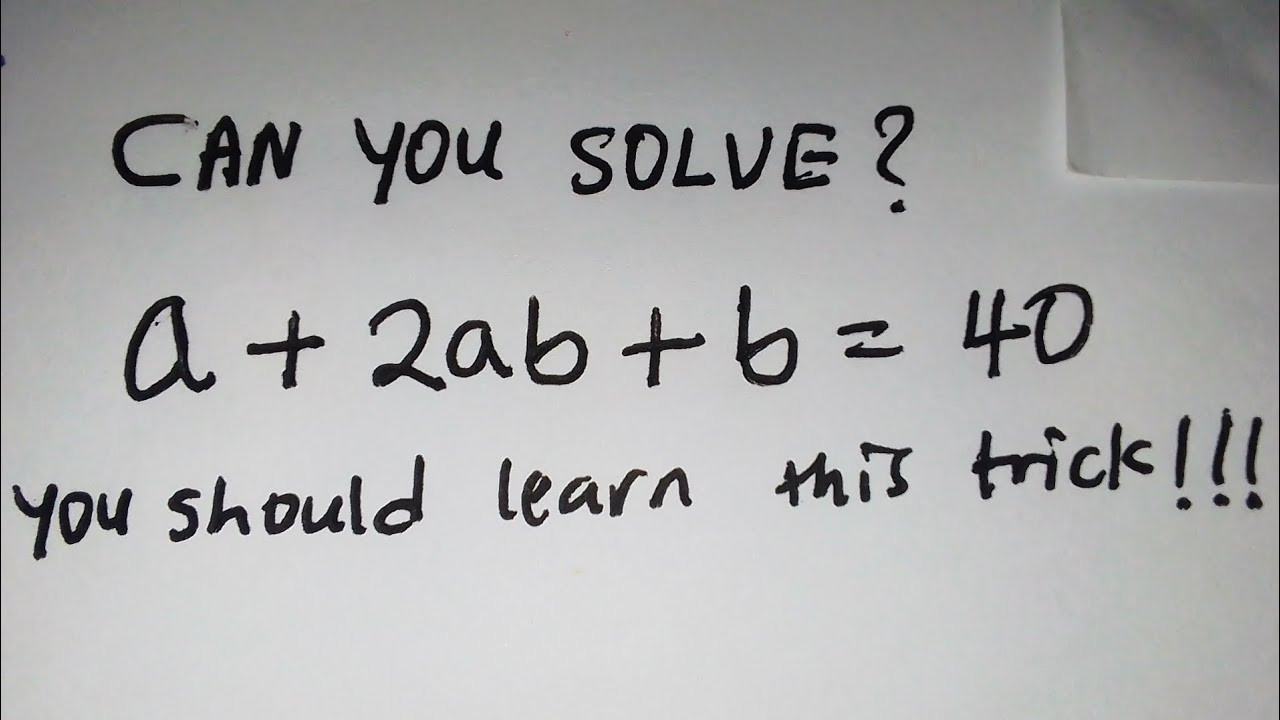 CAN YOU SOLVE?
a + 2ab + b = 40
you should learn this trick!!!